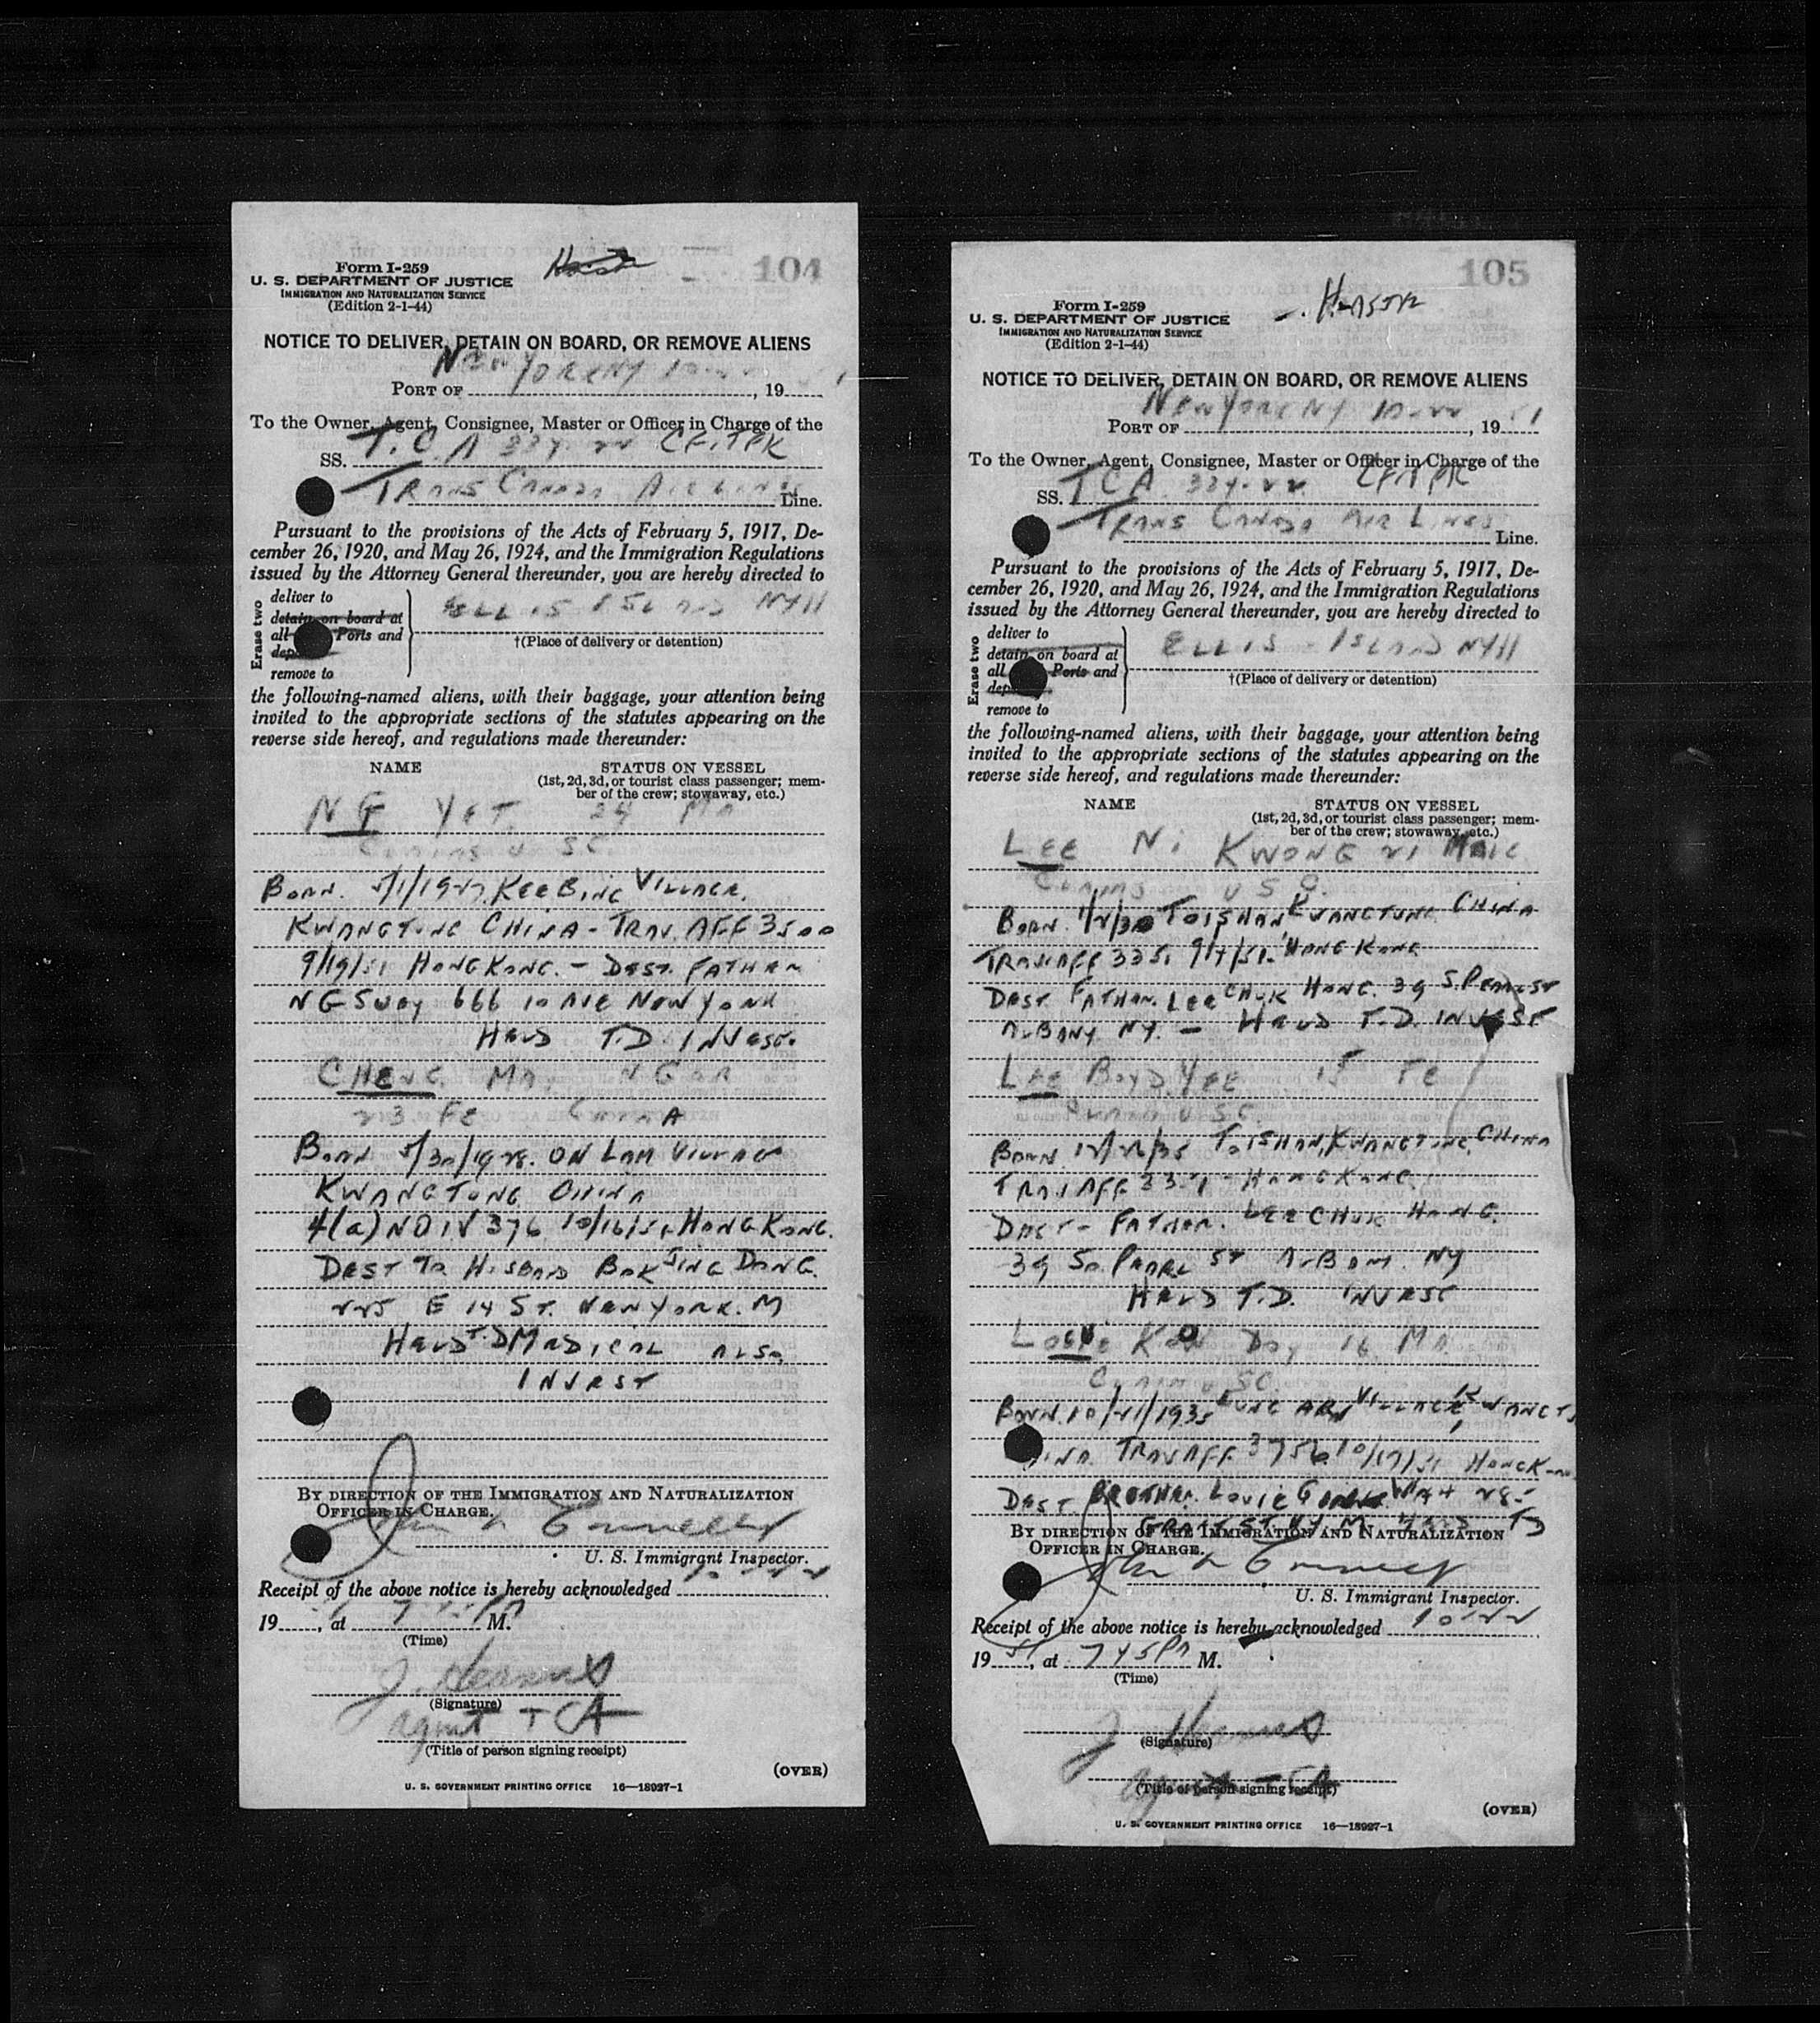 104
Form I-259
U. S. DEPARTMENT OF JUSTICE
IMMIGRATION AND NATURALIZATION SERVICE
(Edition 2-1-44)
NOTICE TO DELIVER, DETAIN ON BOARD, OR REMOVE ALIENS
PORT OF New York NY 10-22, 19
To the Owner, Agent, Consignee, Master or Officer in Charge of the
SS. T.C.A 334-22 CF-TFK
TRANS CANADA AIR LINES Line.
Pursuant to the provisions of the Acts of February 5, 1917, De-
cember 26, 1920, and May 26, 1924, and the Immigration Regulations
issued by the Attorney General thereunder, you are hereby directed to
Erase two
deliver to
detain on board at
all Ports and
remove to
ELLIS ISLAND NYH
†(Place of delivery or detention)
the following-named aliens, with their baggage, your attention being
invited to the appropriate sections of the statutes appearing on the
reverse side hereof, and regulations made thereunder:
NAME STATUS ON VESSEL
(1st, 2d, 3d, or tourist class passenger; mem-
ber of the crew; stowaway, etc.)
NG YET 24 MA
CLAIMS U SC
BORN 5/1/1927 KEE BING VILLAGE
KWANGTUNG CHINA - TRAV. AFF 3500
9/19/51 HONG KONG. - DEST. FATHER
NG SUEY 666 10 AVE NEW YORK
HELD T.D. INVEST.
CHENG MA NGAR
23 FE CHINA
BORN 5/30/1928. ON LAM VILLAGE
KWANGTUNG CHINA
4(a) NO IV 376 10/16/51 HONG KONG.
DEST TO HUSBAND BAK JING DONG
225 E 14 ST. NEW YORK. M
HELD T.D MEDICAL ALSO
INVEST
BY DIRECTION OF THE IMMIGRATION AND NATURALIZATION
OFFICER IN CHARGE.
U. S. Immigrant Inspector.
Receipt of the above notice is hereby acknowledged 10-22
19 , at 7 M.
(Time)
J.
(Signature)
agent TCA
(Title of person signing receipt)
(OVER)
U. S. GOVERNMENT PRINTING OFFICE 16—18927-1
105
Form I-259
U. S. DEPARTMENT OF JUSTICE
IMMIGRATION AND NATURALIZATION SERVICE
(Edition 2-1-44)
NOTICE TO DELIVER, DETAIN ON BOARD, OR REMOVE ALIENS
PORT OF New York NY 10-22, 19 51
To the Owner, Agent, Consignee, Master or Officer in Charge of the
SS. TCA 334-22 CF-TFK
TRANS CANADA AIR LINES Line.
Pursuant to the provisions of the Acts of February 5, 1917, De-
cember 26, 1920, and May 26, 1924, and the Immigration Regulations
issued by the Attorney General thereunder, you are hereby directed to
Erase two
deliver to
detain on board at
all Ports and
remove to
ELLIS ISLAND NYH
†(Place of delivery or detention)
the following-named aliens, with their baggage, your attention being
invited to the appropriate sections of the statutes appearing on the
reverse side hereof, and regulations made thereunder:
NAME STATUS ON VESSEL
(1st, 2d, 3d, or tourist class passenger; mem-
ber of the crew; stowaway, etc.)
LEE NI KWONG 21 MALE
CLAIMS U S C.
BORN 1/2/30 TOISHAN, KWANGTUNG CHINA
TRAV AFF 335 9/4/51 - HONG KONG
DEST FATHER. LEE CHUK HONG. 39 S. PEARL ST
ALBANY NY. - HELD T.D. INVEST
LEE BOYD YEE 15 FE
CLAIM U S C.
BORN 12/26/35 TOISHAN, KWANGTUNG, CHINA
TRAV AFF HONG KONG
DEST - FATHER. LEE CHUK HONG.
39 SO. PEARL ST ALBANY. NY
HELD T.D. INVEST
LOUIE KON DOY 16 MA.
CLAIM U SC.
BORN 10/21/1935 VILLAGE, KWANGT
TRAV AFF. 3756 10/17/51 HONG KONG
DEST. BROTHER. LOUIE
HELD TD
BY DIRECTION OF THE IMMIGRATION AND NATURALIZATION
OFFICER IN CHARGE.
U. S. Immigrant Inspector.
Receipt of the above notice is hereby acknowledged 10-22
19 51, at 7 45 P M.
(Time)
J.
(Signature)
agent TCA
(Title of person signing receipt)
(OVER)
U. S. GOVERNMENT PRINTING OFFICE 16—18927-1